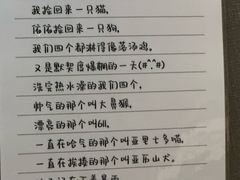 我捡回来一只猫,
佑佑捡回来一只狗,
我们四个都淋得像落汤鸡。
又是默契度爆棚的一天(#^.^#)
洗完热水澡的我们四个,
帅气的那个叫大鼻猴,
漂亮的那个叫611,
一直在哈气的那个叫亚里士多喵,
一直在挨揍的那个叫亚历山犬。